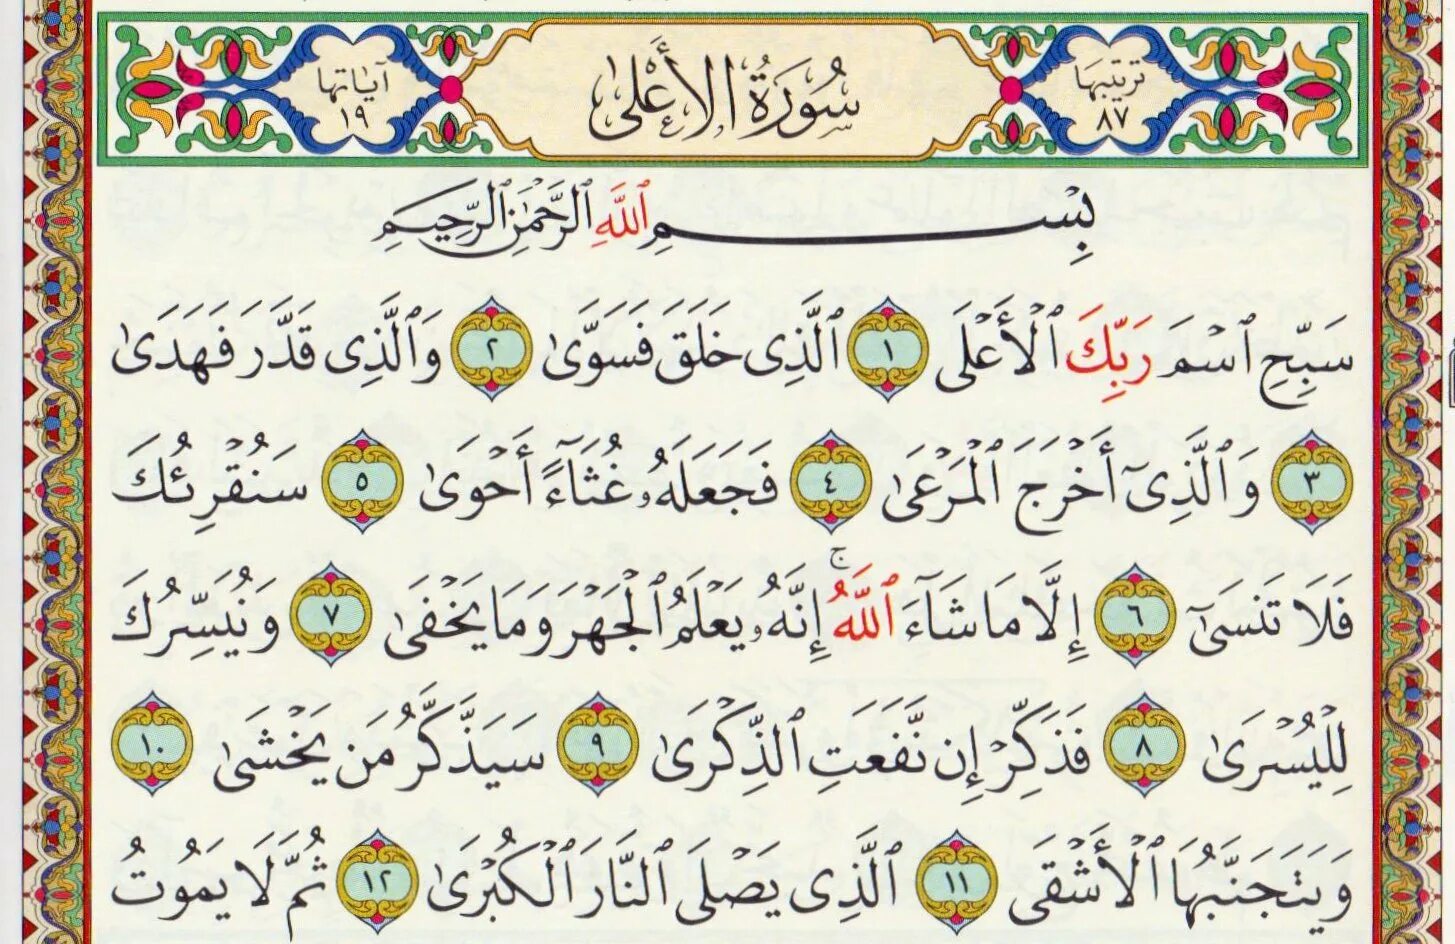 ترتيبها ٨٧
سُورَةُ الأَعْلىٰ
آياتها ١٩
بِسْمِ ٱللَّهِ ٱلرَّحْمَٰنِ ٱلرَّحِيمِ
سَبِّحِ ٱسْمَ رَبِّكَ ٱلْأَعْلَى ١ ٱلَّذِى خَلَقَ فَسَوَّىٰ ٢ وَٱلَّذِى قَدَّرَ فَهَدَىٰ
٣ وَٱلَّذِىٓ أَخْرَجَ ٱلْمَرْعَىٰ ٤ فَجَعَلَهُۥ غُثَآءً أَحْوَىٰ ٥ سَنُقْرِئُكَ
فَلَا تَنسَىٰٓ ٦ إِلَّا مَا شَآءَ ٱللَّهُ ۚ إِنَّهُۥ يَعْلَمُ ٱلْجَهْرَ وَمَا يَخْفَىٰ ٧ وَنُيَسِّرُكَ
لِلْيُسْرَىٰ ٨ فَذَكِّرْ إِن نَّفَعَتِ ٱلذِّكْرَىٰ ٩ سَيَذَّكَّرُ مَن يَخْشَىٰ ١٠
وَيَتَجَنَّبُهَا ٱلْأَشْقَى ١١ ٱلَّذِى يَصْلَى ٱلنَّارَ ٱلْكُبْرَىٰ ١٢ ثُمَّ لَا يَمُوتُ